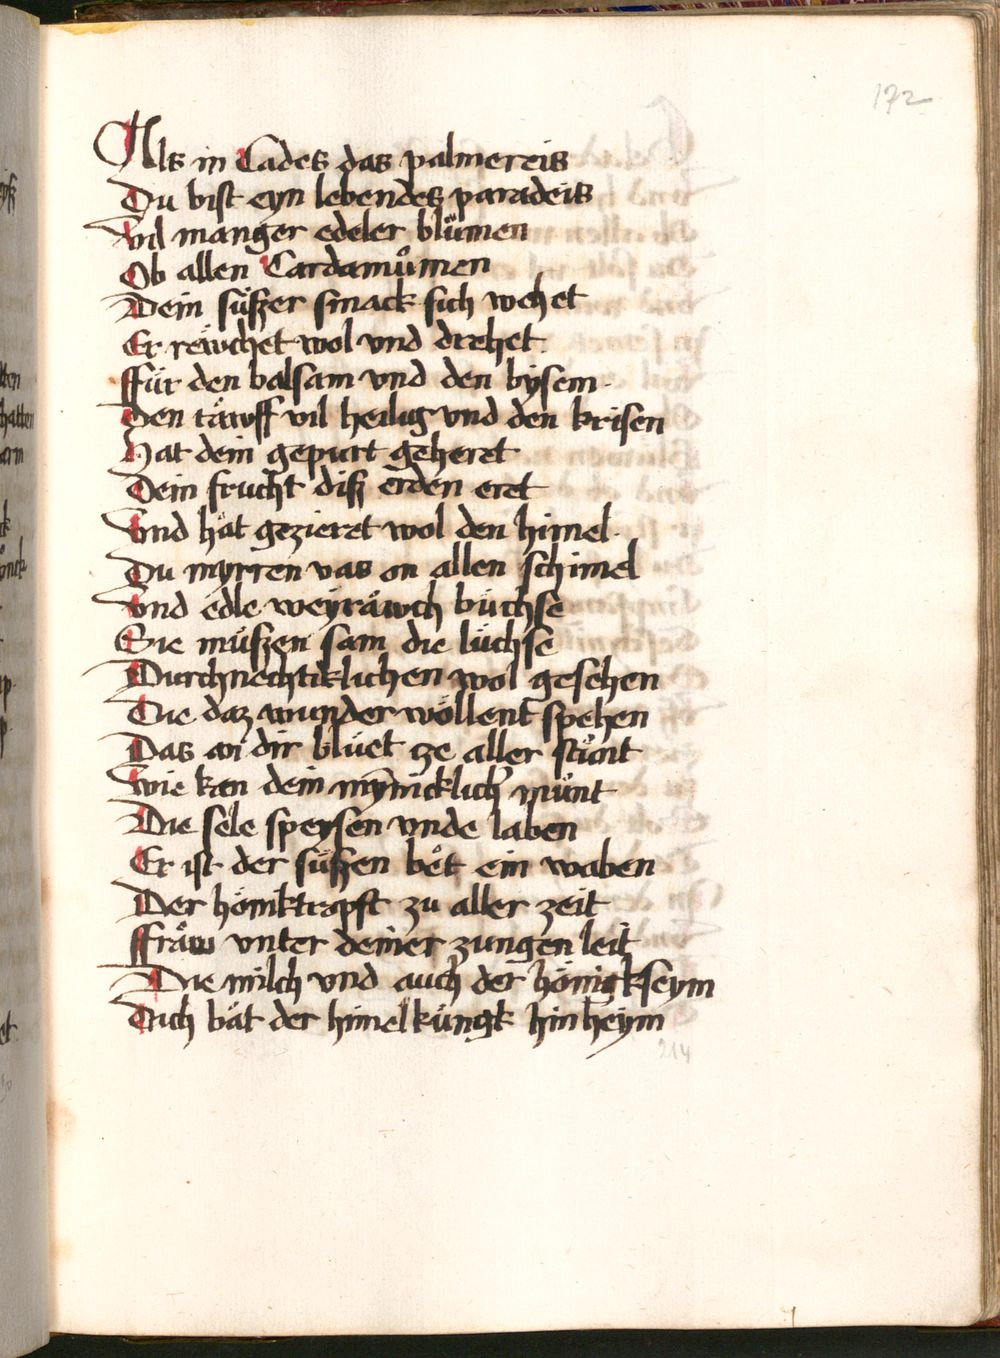 172
Als in Cades das palmereis
Du bist eyn lebendes paradeis
Vnd manger edeler blůmen
Ob allen Cardamůmen
Dein süszer smack sich wehet
Er räwchet wol vnd drehet
Ffür den balsam vnd den bysem
Den täwff vil heilig vnd den krisen
Hat dein gepurt geheret
Dein frucht disz erden eret
Vnd hät gezieret wol den himel
Du myrren vas on allen schimel
Vnd edle weyräwch büchse
Sie müszen sam die lüchse
Durchnechtiklichen wol gesehen
Die daz wunder wöllent spehen
Das an dir blüet ze aller stünt
Wie kan dein mynicklicher münt
Die sele speysen vnde laben
Er ist der süszen bet ein waben
Der höniktropft zu aller zeit
Ffräw vnter deiner zungen leit
Die milch vnd auch der hönigkseym
Dich bät der himelküngk hin heym
214